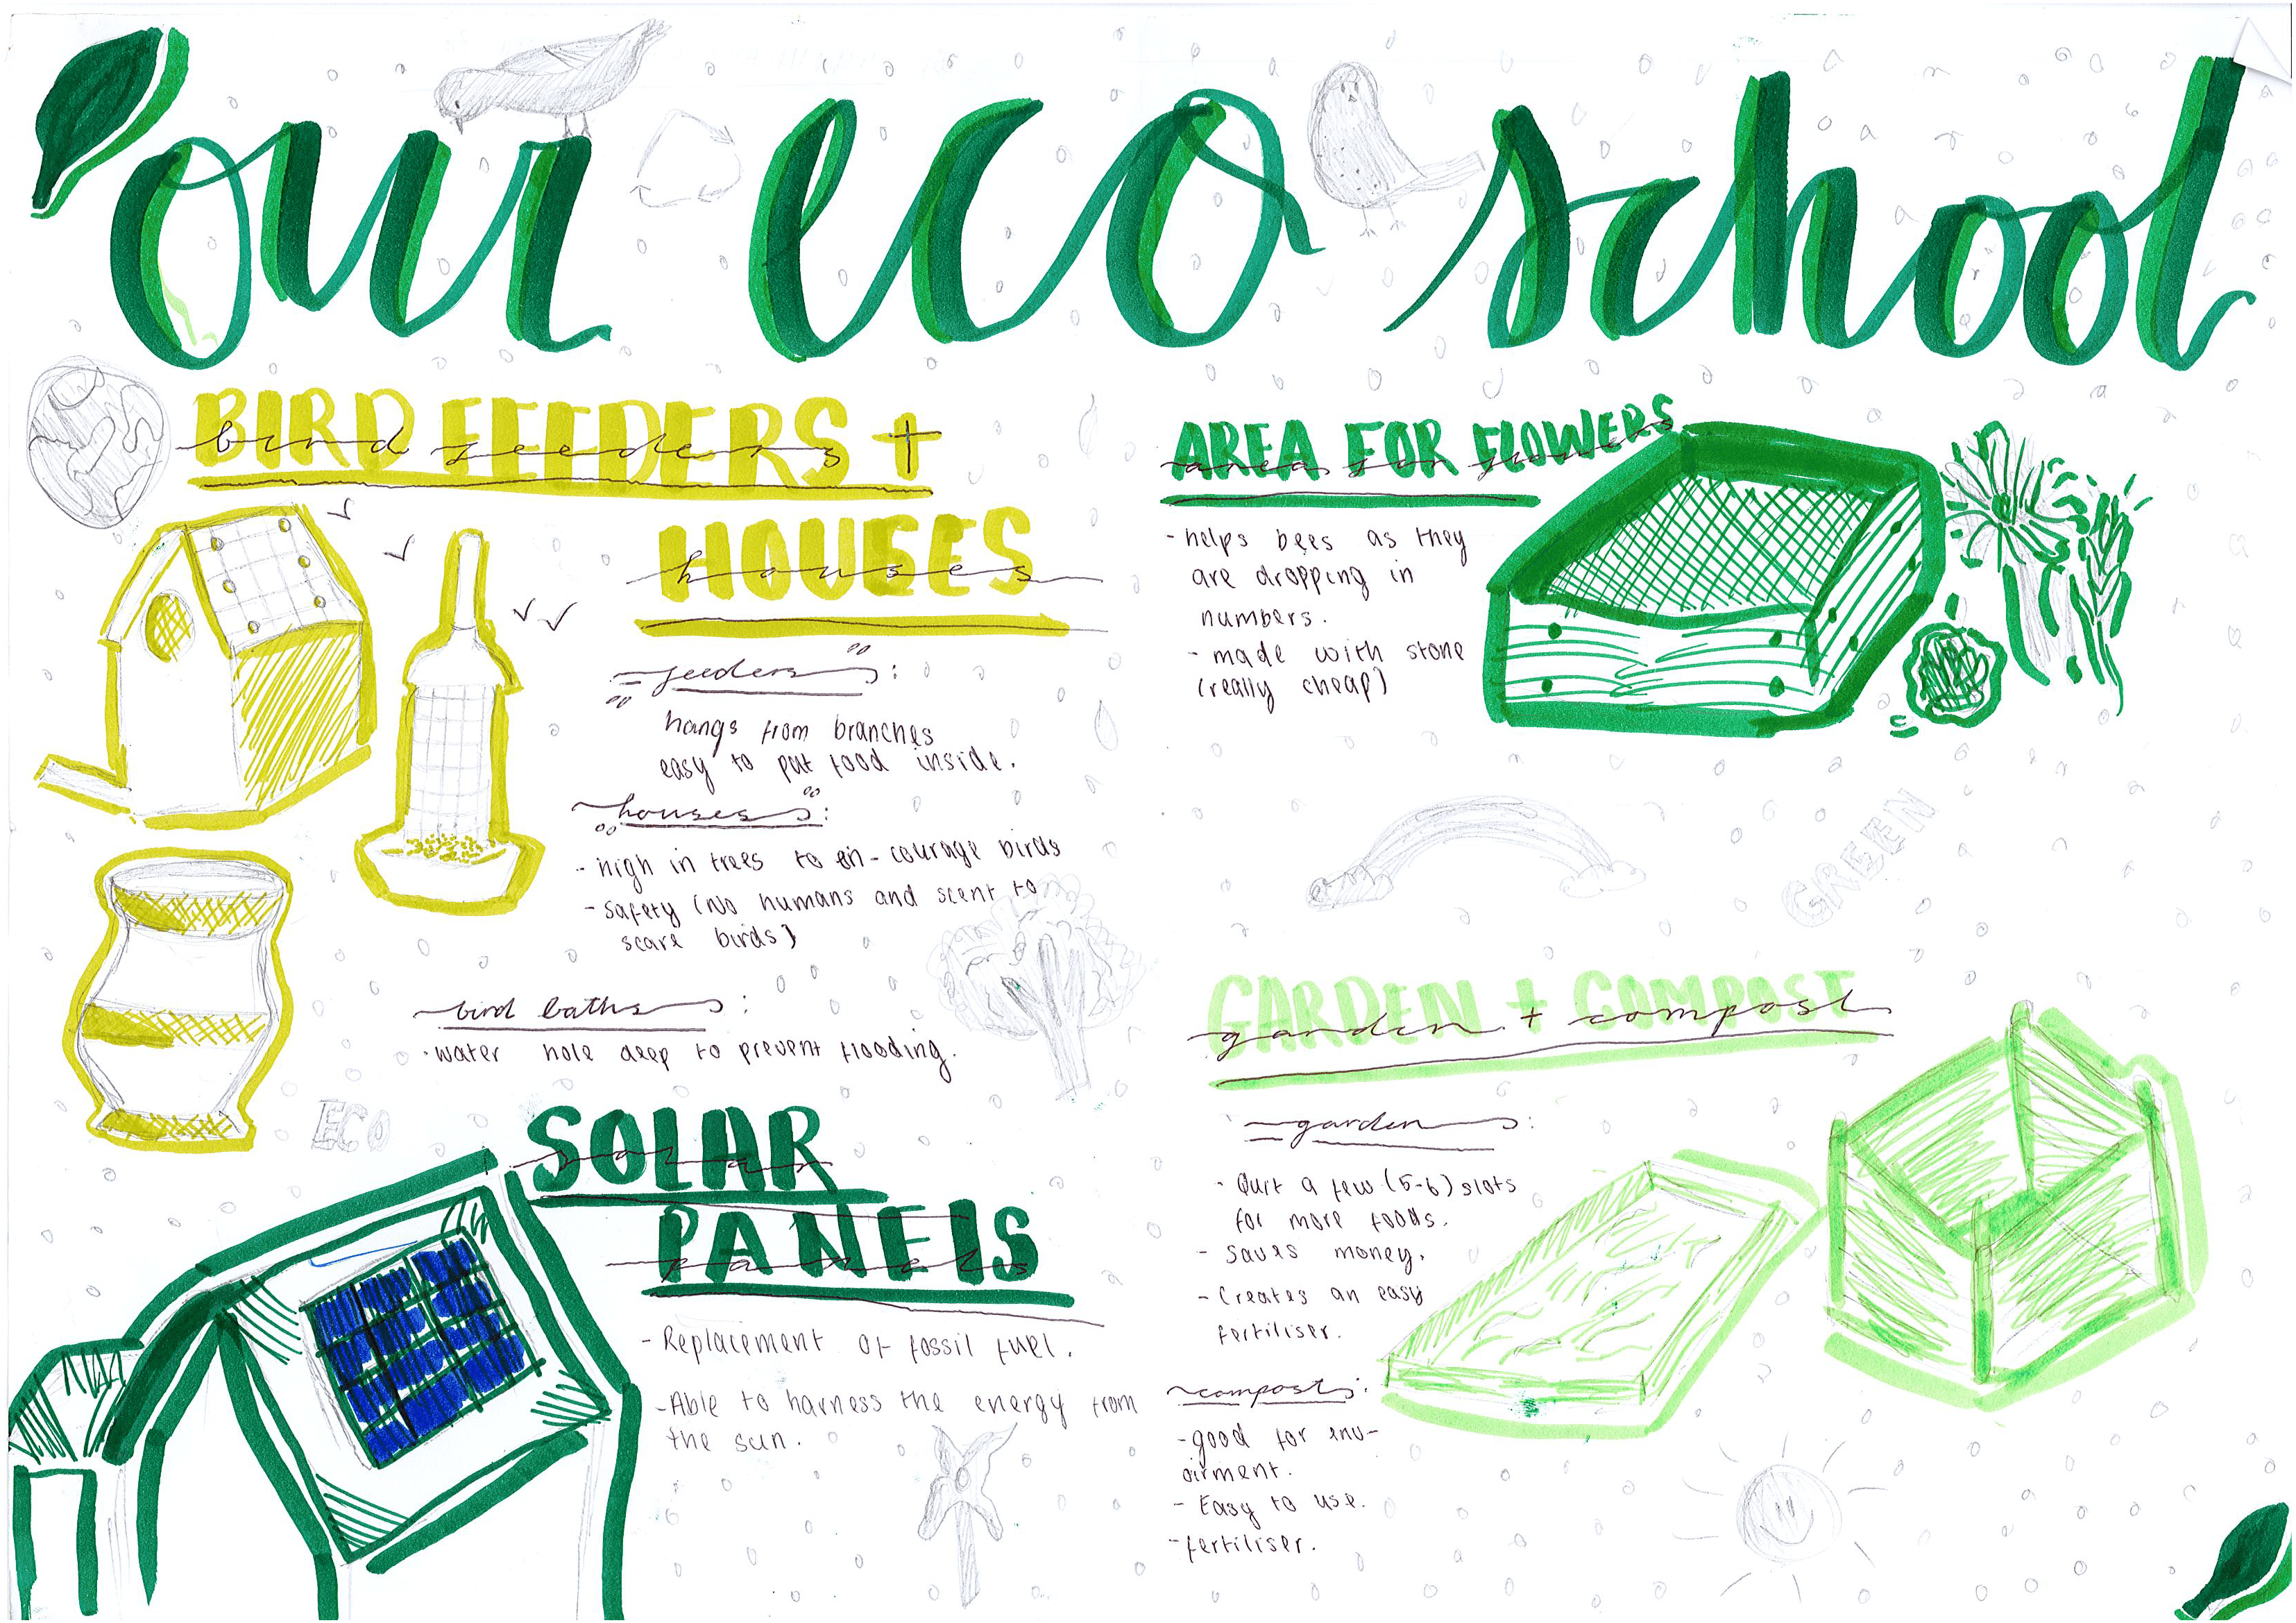 our eco school
BIRD FEEDERS +
bird feeders +
HOUSES
houses
feeders:
hangs from branches
easy to put food inside.
houses:
- high in trees to en-courage birds
- safety (No humans and scent to
scare birds)
bird baths:
· water hole deep to prevent flooding.
ECO
SOLAR
solar
PANELS
panels
- Replacement of fossil fuel.
- Able to harness the energy from
the sun.
AREA FOR FLOWERS
area for flowers
- helps bees as they
are dropping in
numbers.
- made with stone
(really cheap)
GREEN
GARDEN + COMPOST
garden + compost
garden:
- Quit a few (5-6) slots
for more foods.
- saves money.
- Creates an easy
fertiliser.
compost:
- good for env-
oirment.
- Easy to use.
- fertiliser.